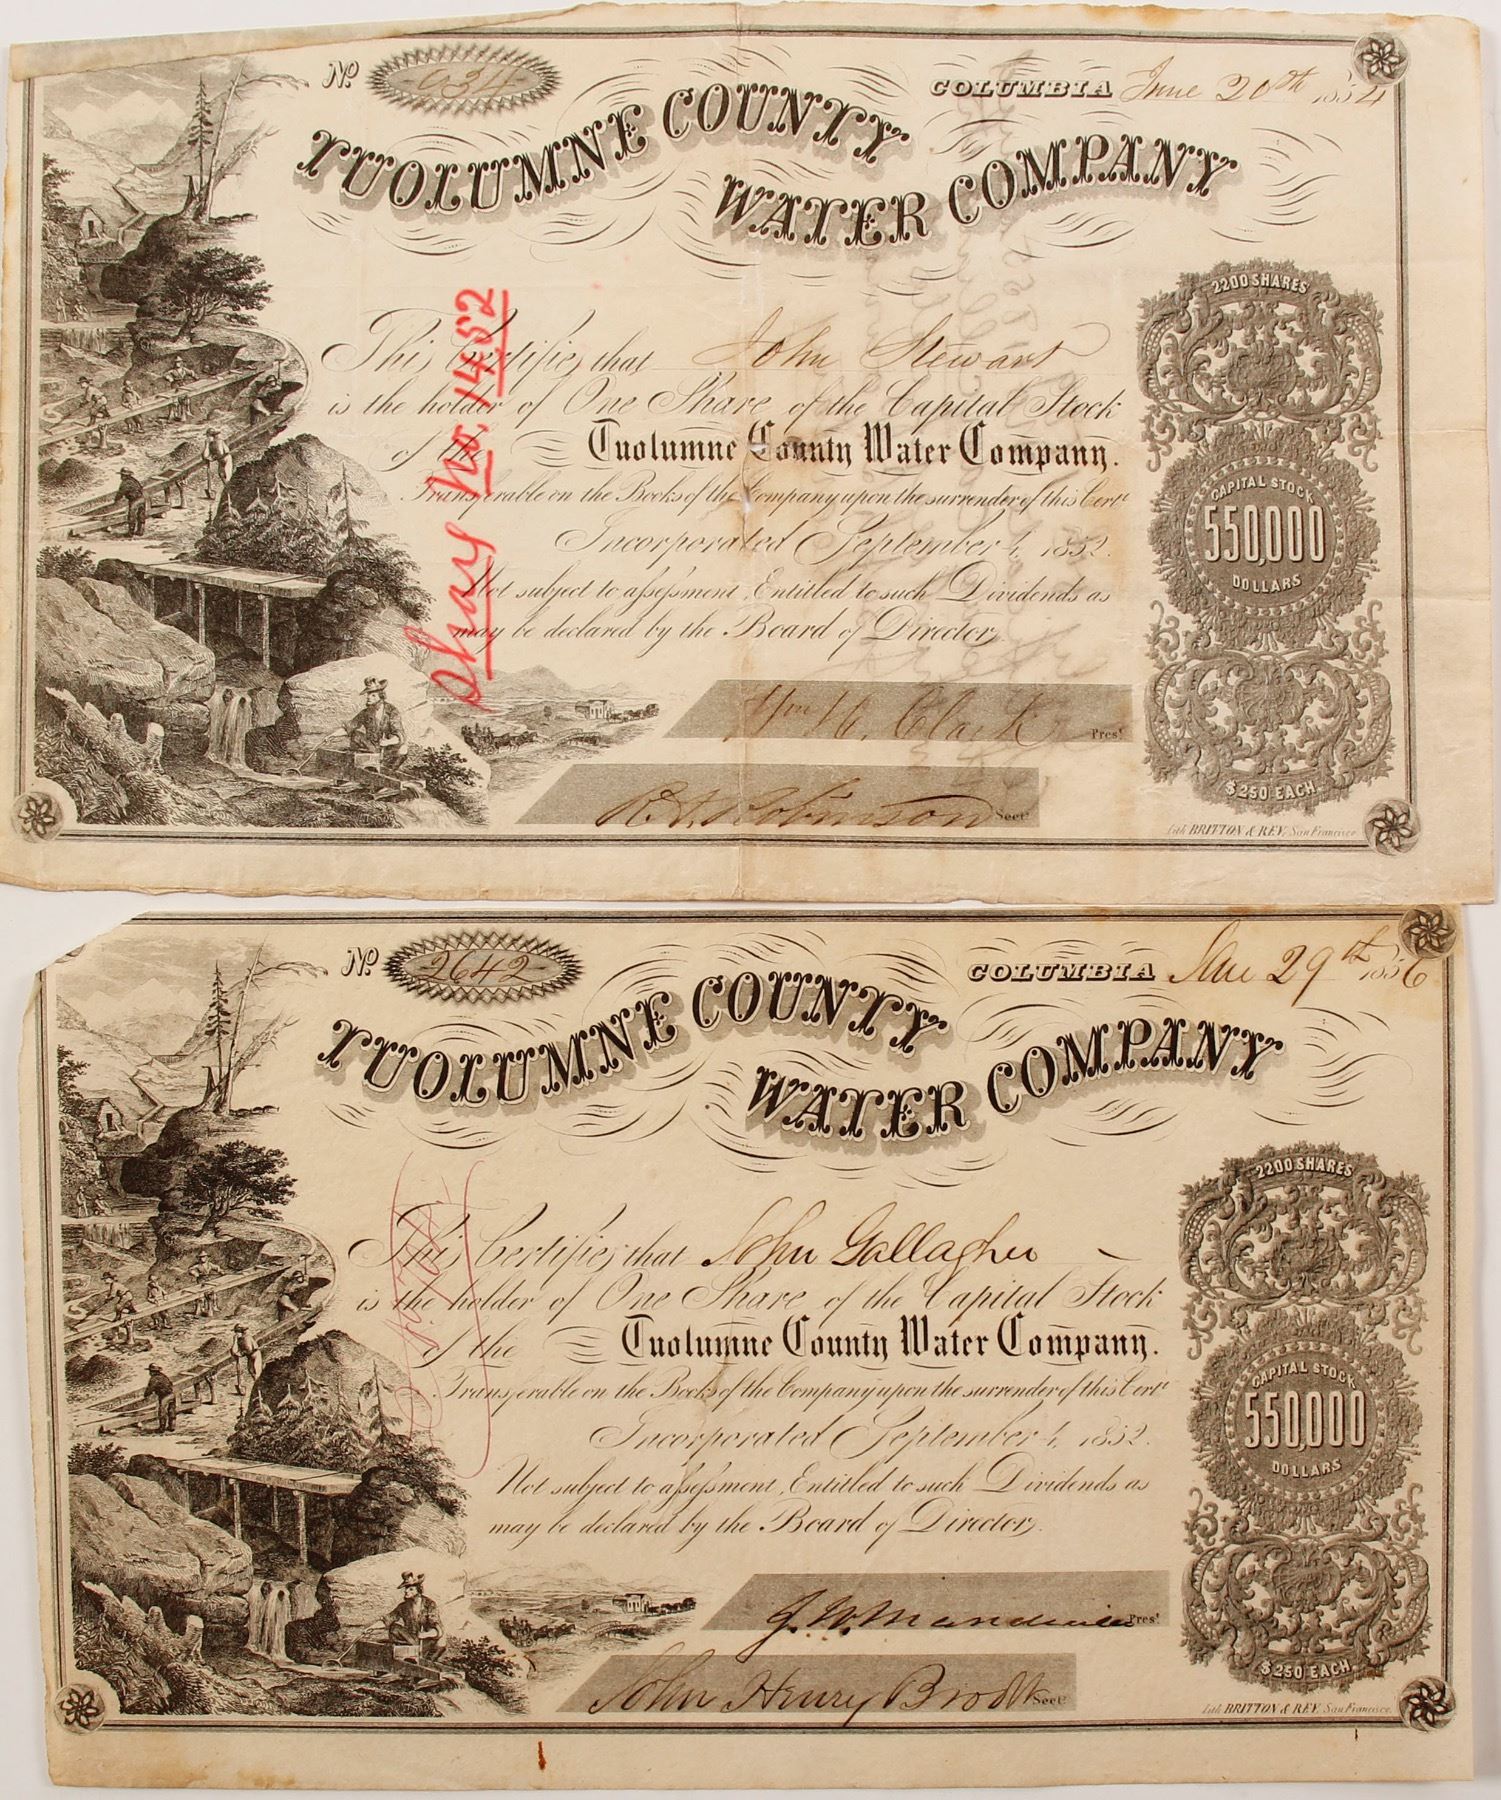 No 034 COLUMBIA June 20th 1854
TUOLUMNE COUNTY
WATER COMPANY
This Certifies that John Stewart
is the holder of One Share of the Capital Stock
of the Tuolumne County Water Company.
Transferable on the Books of the Company upon the surrender of this Certt
Incorporated September 4, 1852.
Not subject to assessment, Entitled to such Dividends as
may be declared by the Board of Directors.
Share No. 1452
Wm H. Clark Prest
R. A. Robinson Secty
2200 SHARES
CAPITAL STOCK
550,000
DOLLARS
$250 EACH
Lith. BRITTON & REY, San Francisco
No 2642 COLUMBIA Jan 29th 1856
TUOLUMNE COUNTY
WATER COMPANY
This Certifies that John Gallagher
is the holder of One Share of the Capital Stock
of the Tuolumne County Water Company.
Transferable on the Books of the Company upon the surrender of this Certt
Incorporated September 4, 1852.
Not subject to assessment, Entitled to such Dividends as
may be declared by the Board of Directors.
J. W. Mandeville Prest
John Henry Brodt Secty
2200 SHARES
CAPITAL STOCK
550,000
DOLLARS
$250 EACH
Lith. BRITTON & REY, San Francisco.